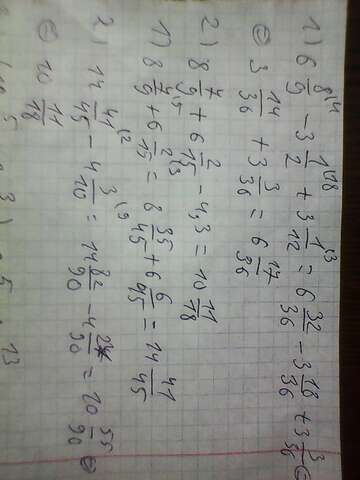 1) 6 8/9 - 3 1/2 + 3 1/12 = 6 32/36 - 3 18/36 + 3 3/36 =
= 3 14/36 + 3 3/36 = 6 17/36
2) 8 7/9 + 6 2/15 - 4,3 = 10 11/18
1) 8 7/9 + 6 2/15 = 8 35/45 + 6 6/45 = 14 41/45
2) 14 41/45 - 4 3/10 = 14 82/90 - 4 27/90 = 10 55/90 =
= 10 11/18